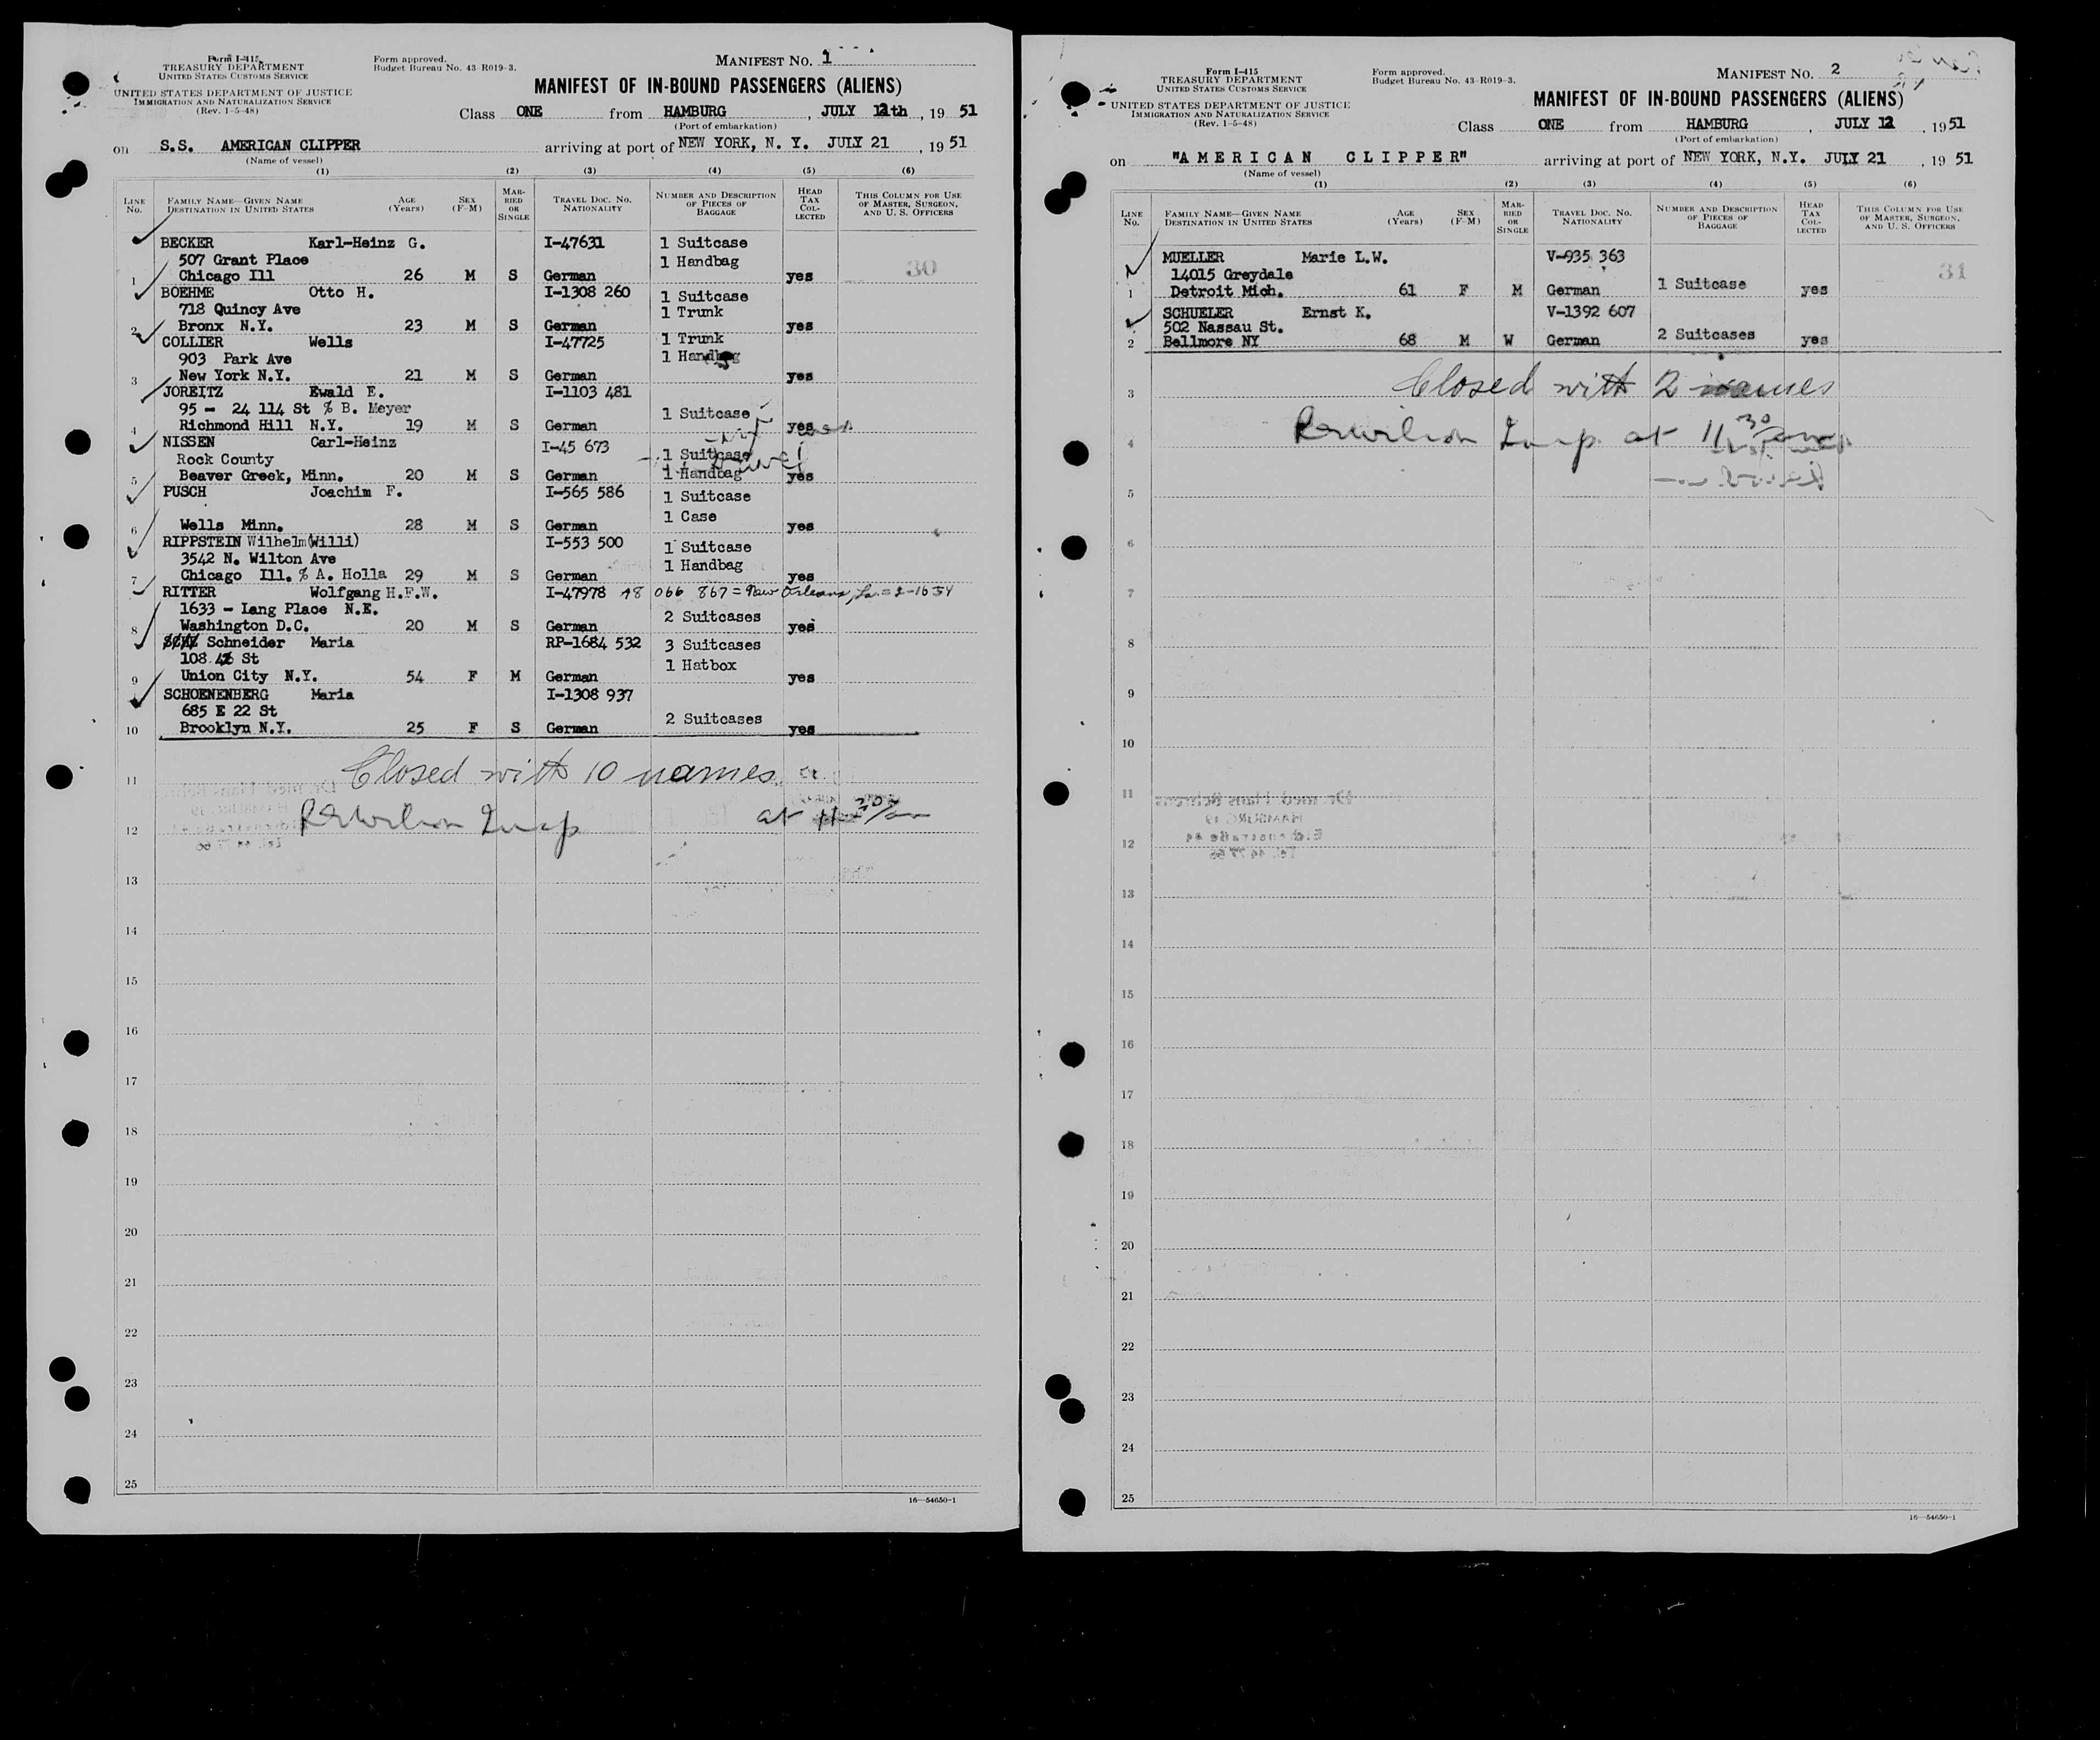 Form I-415
TREASURY DEPARTMENT
UNITED STATES CUSTOMS SERVICE
UNITED STATES DEPARTMENT OF JUSTICE
IMMIGRATION AND NATURALIZATION SERVICE
(Rev. 1-5-48)
Form approved.
Budget Bureau No. 43-R019-3.
MANIFEST NO. 1
MANIFEST OF IN-BOUND PASSENGERS (ALIENS)
Class ONE from HAMBURG , JULY 12th , 19 51
(Port of embarkation)
on S.S. AMERICAN CLIPPER arriving at port of NEW YORK, N. Y. JULY 21 , 19 51
(Name of vessel)
(1) (2) (3) (4) (5) (6)
LINE No. FAMILY NAME—GIVEN NAME DESTINATION IN UNITED STATES AGE (Years) SEX (F-M) MARRIED OR SINGLE TRAVEL DOC. NO. NATIONALITY NUMBER AND DESCRIPTION OF PIECES OF BAGGAGE HEAD TAX COLLECTED THIS COLUMN FOR USE OF MASTER, SURGEON, AND U. S. OFFICERS
BECKER Karl-Heinz G. I-47631 1 Suitcase
507 Grant Place 1 Handbag 30
1 Chicago Ill 26 M S German yes
BOEHME Otto H. I-1308 260 1 Suitcase
718 Quincy Ave 1 Trunk
2 Bronx N.Y. 23 M S German yes
COLLIER Wells I-47725 1 Trunk
903 Park Ave 1 Handbag
3 New York N.Y. 21 M S German yes
JOREITZ Ewald E. I-1103 481
95 - 24 114 St % B. Meyer 1 Suitcase
4 Richmond Hill N.Y. 19 M S German yes
NISSEN Carl-Heinz I-45 673
Rock County 1 Suitcase
5 Beaver Greek, Minn. 20 M S German 1 Handbag yes
PUSCH Joachim F. I-565 586 1 Suitcase
1 Case
6 Wells Minn. 28 M S German yes
RIPPSTEIN Wilhelm(Willi) I-553 500 1 Suitcase
3542 N. Wilton Ave 1 Handbag
7 Chicago Ill. % A. Holla 29 M S German yes
RITTER Wolfgang H.F.W. I-47978 A8 066 867 = New Orleans, La. = 2-16 54
1633 - Lang Place N.E. 2 Suitcases
8 Washington D.C. 20 M S German yes
Schneider Maria RP-1684 532 3 Suitcases
108 St 1 Hatbox
9 Union City N.Y. 54 F M German yes
SCHOENENBERG Maria I-1308 937
685 E 22 St 2 Suitcases
10 Brooklyn N.Y. 25 F S German yes
11 Closed with 10 names
12 Insp at 11 30
13
14
15
16
17
18
19
20
21
22
23
24
25
16—54650-1
Form I-415
TREASURY DEPARTMENT
UNITED STATES CUSTOMS SERVICE
UNITED STATES DEPARTMENT OF JUSTICE
IMMIGRATION AND NATURALIZATION SERVICE
(Rev. 1-5-48)
Form approved.
Budget Bureau No. 43-R019-3.
MANIFEST NO. 2
MANIFEST OF IN-BOUND PASSENGERS (ALIENS)
Class ONE from HAMBURG , JULY 12 , 19 51
(Port of embarkation)
on "AMERICAN CLIPPER" arriving at port of NEW YORK, N.Y. JULY 21 , 19 51
(Name of vessel)
(1) (2) (3) (4) (5) (6)
LINE No. FAMILY NAME—GIVEN NAME DESTINATION IN UNITED STATES AGE (Years) SEX (F-M) MARRIED OR SINGLE TRAVEL DOC. NO. NATIONALITY NUMBER AND DESCRIPTION OF PIECES OF BAGGAGE HEAD TAX COLLECTED THIS COLUMN FOR USE OF MASTER, SURGEON, AND U. S. OFFICERS
MUELLER Marie L.W. V-935 363
14015 Greydale 31
1 Detroit Mich. 61 F M German 1 Suitcase yes
SCHUELER Ernst K. V-1392 607
502 Nassau St.
2 Bellmore NY 68 M W German 2 Suitcases yes
3 Closed with 2 names
4 Insp. at 11 30
5
6
7
8
9
10
11
12
13
14
15
16
17
18
19
20
21
22
23
24
25
16—54650-1